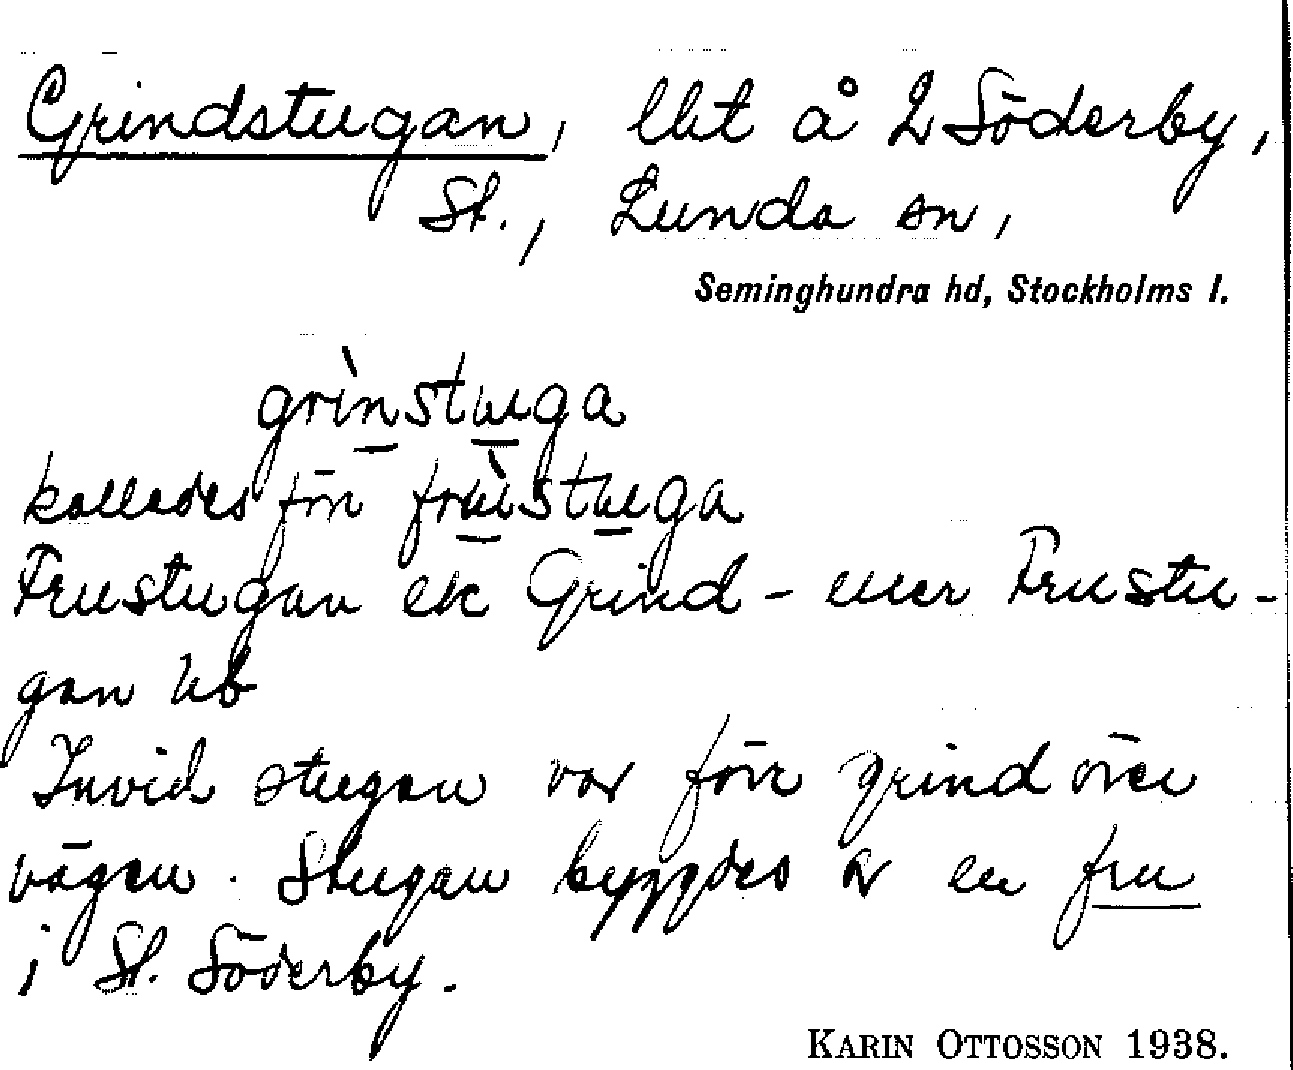 Grindstugan, lht å 2 Söderby,
St., Lunda sn,
Seminghundra hd, Stockholms l.
grìnstuga
kallades förr frùstuga
Frustugan ek Grind- eller Frustu-
gan hb
Invid stugan var förr grind över
vägen. Stugan byggdes av en fru
i St. Söderby.
KARIN OTTOSSON 1938.